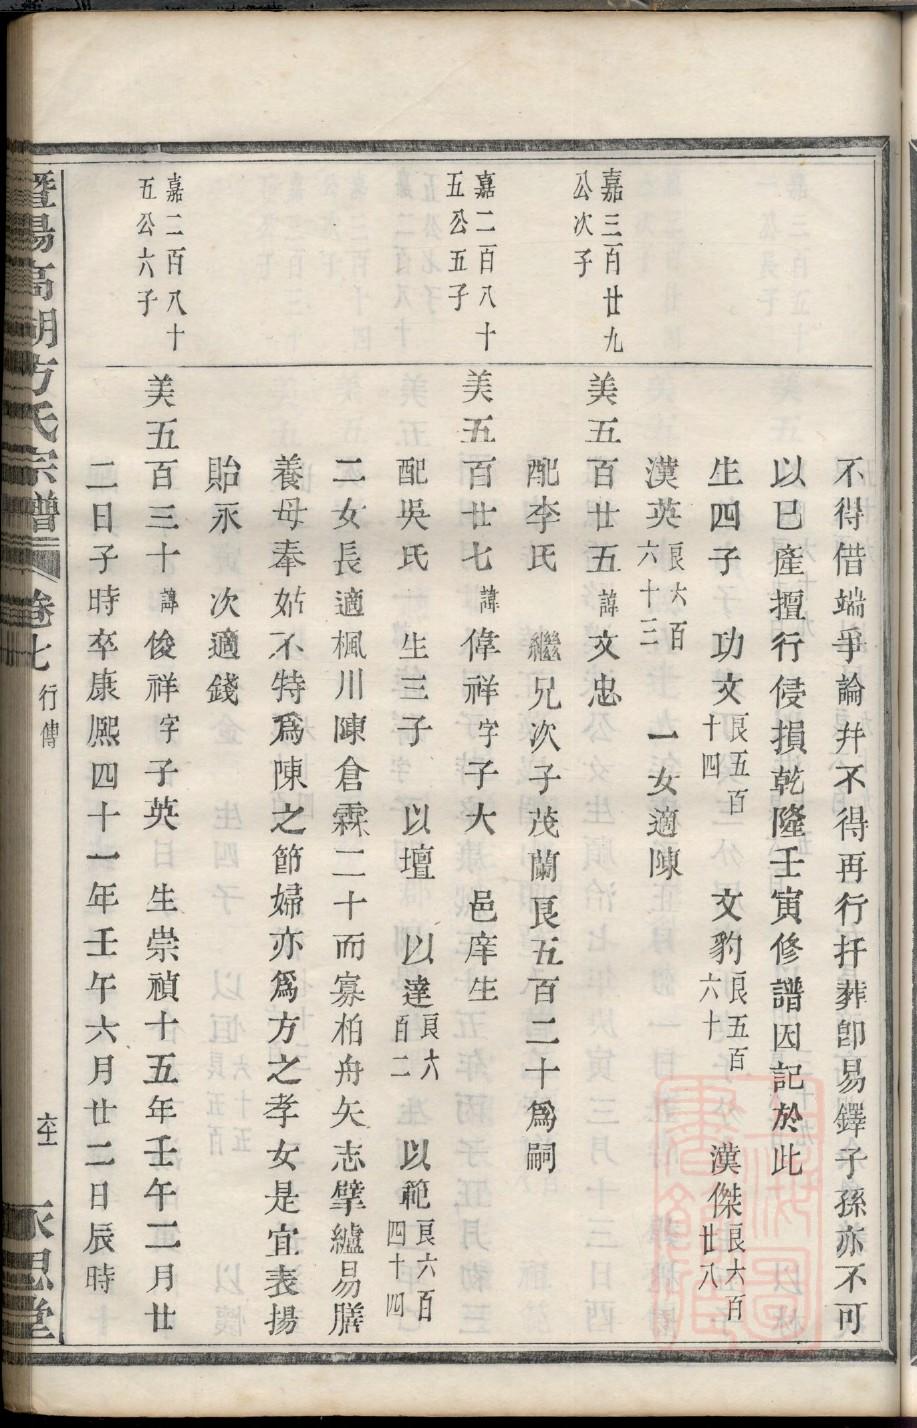 不得借端爭論幷不得再行扦葬卽易鐸子孫亦不可
以已產擅行侵損乾隆壬寅修譜因記於此
生四子 功文良五百十四 文豹良五百六十 漢傑良六百廿八
漢英良六百六十三 一女適陳
嘉三百廿九公次子
美五百廿五諱文忠
配李氏 繼兄次子茂蘭良五百二十爲嗣
嘉二百八十五公五子
美五百廿七諱偉祥字子大 邑庠生
配吳氏 生三子 以壇 以達良六百二 以範良六百四十四
二女長適楓川陳倉霖二十而寡柏舟矢志擘纑易膳
養母奉姑不特爲陳之節婦亦爲方之孝女是宜表揚
貽永 次適錢
嘉二百八十五公六子
美五百三十諱俊祥字子英 生崇禎十五年壬午二月廿
二日子時卒康熈四十一年壬午六月廿二日辰時
暨陽高湖方氏宗譜 卷七 行傳 永思堂